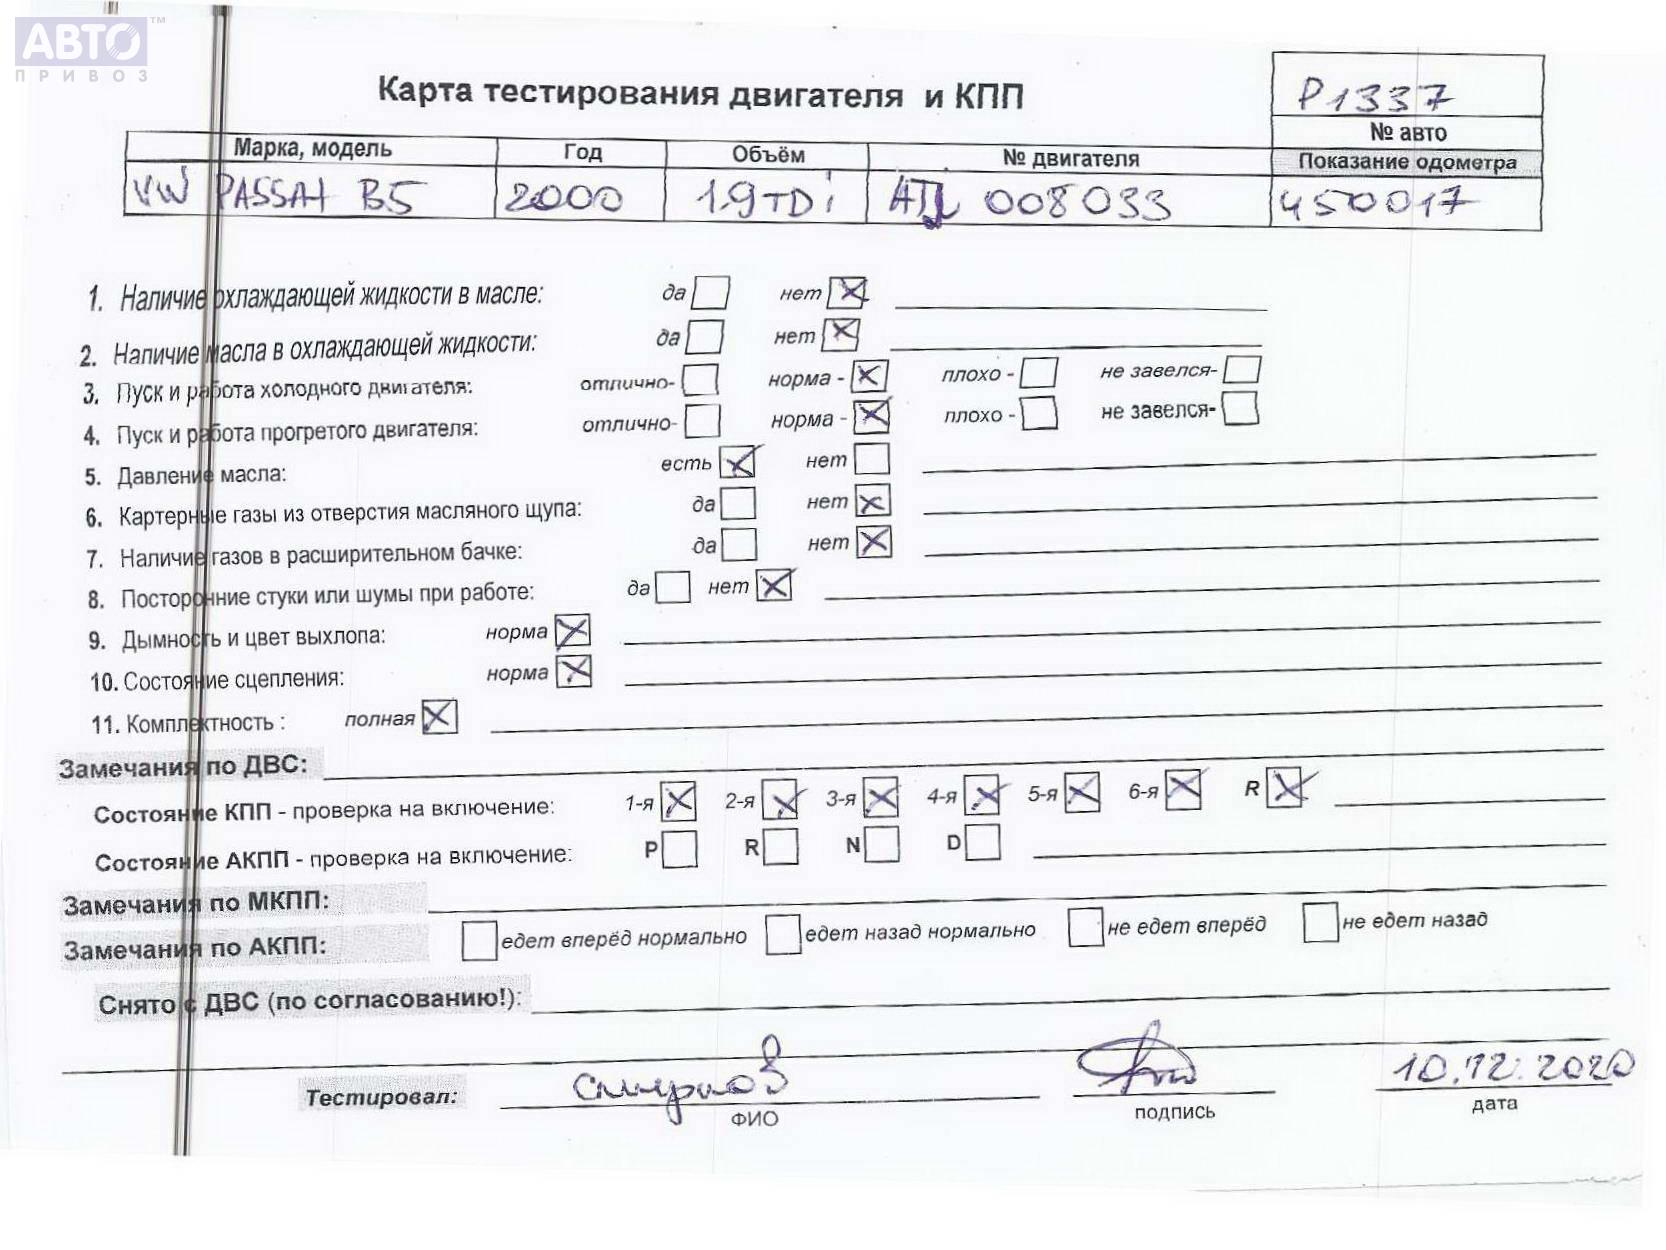 АВТО™
ПРИВОЗ
Карта тестирования двигателя и КПП
P1337
№ авто
Марка, модель Год Объём № двигателя Показание одометра
VW PASSAT B5 2000 1.9 TDi 008033 450017
1. Наличие охлаждающей жидкости в масле: да нет
2. Наличие масла в охлаждающей жидкости: да нет
3. Пуск и работа холодного двигателя: отлично- норма - плохо - не завелся-
4. Пуск и работа прогретого двигателя: отлично- норма - плохо - не завелся-
5. Давление масла: есть нет
6. Картерные газы из отверстия масляного щупа: да нет
7. Наличие газов в расширительном бачке: да нет
8. Посторонние стуки или шумы при работе: да нет
9. Дымность и цвет выхлопа: норма
10. Состояние сцепления: норма
11. Комплектность : полная
Замечания по ДВС:
Состояние КПП - проверка на включение: 1-я 2-я 3-я 4-я 5-я 6-я R
Состояние АКПП - проверка на включение: P R N D
Замечания по МКПП:
Замечания по АКПП: едет вперёд нормально едет назад нормально не едет вперёд не едет назад
Снято с ДВС (по согласованию!):
Тестировал: Смирнов 10.12.2020
ФИО подпись дата